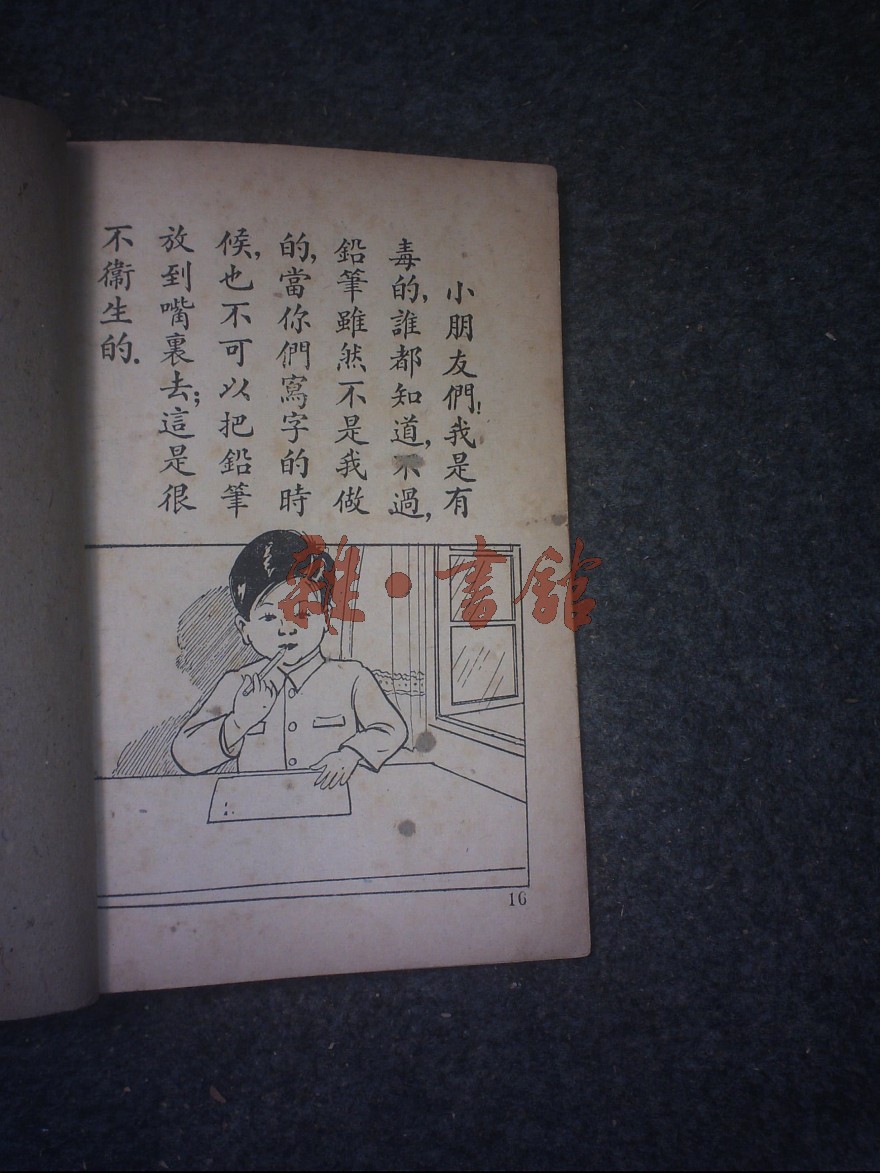 小朋友們!我是有
毒的,誰都知道,不過,
鉛筆雖然不是我做
的,當你們寫字的時
候,也不可以把鉛筆
放到嘴裏去;這是很
不衞生的.
雜·書館
16